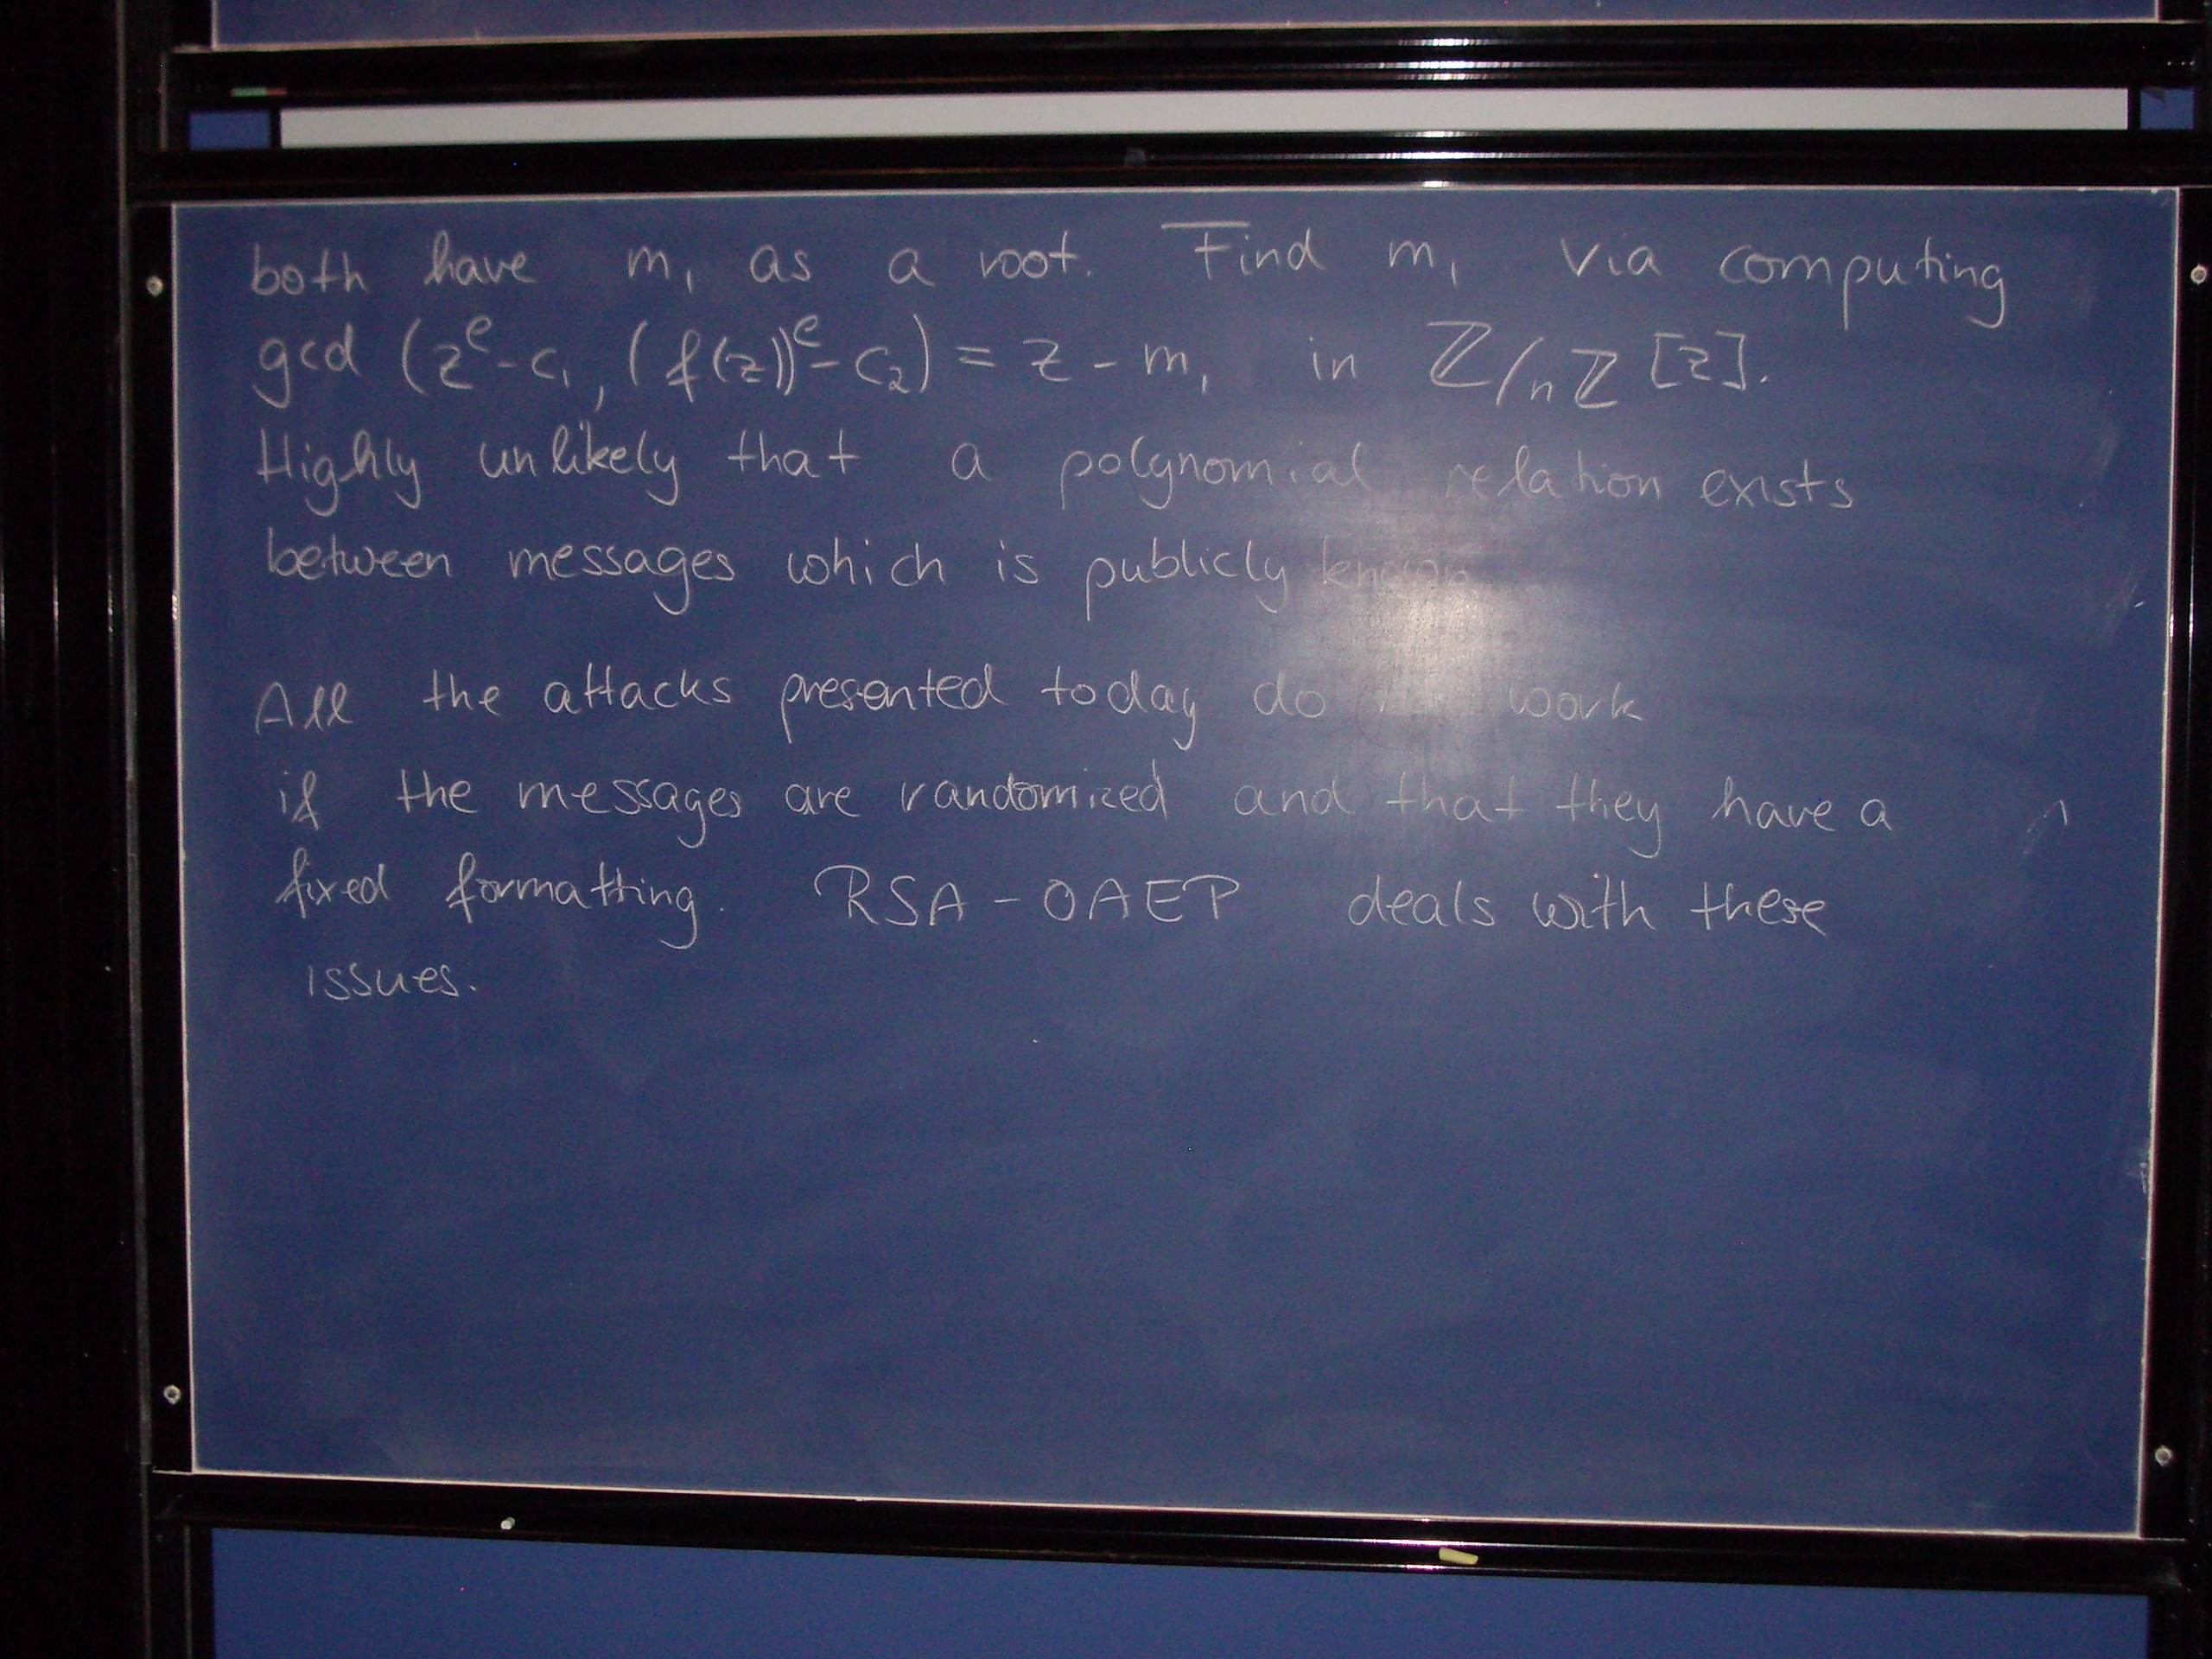 both have m₁ as a root. Find m₁ via computing
gcd (z^e - c₁, (f(z))^e - c₂) = z - m₁ in ℤ/nℤ [z].
Highly unlikely that a polynomial relation exists
between messages which is publicly known
All the attacks presented today do work
if the messages are randomized and that they have a
fixed formatting. RSA - OAEP deals with these
issues.